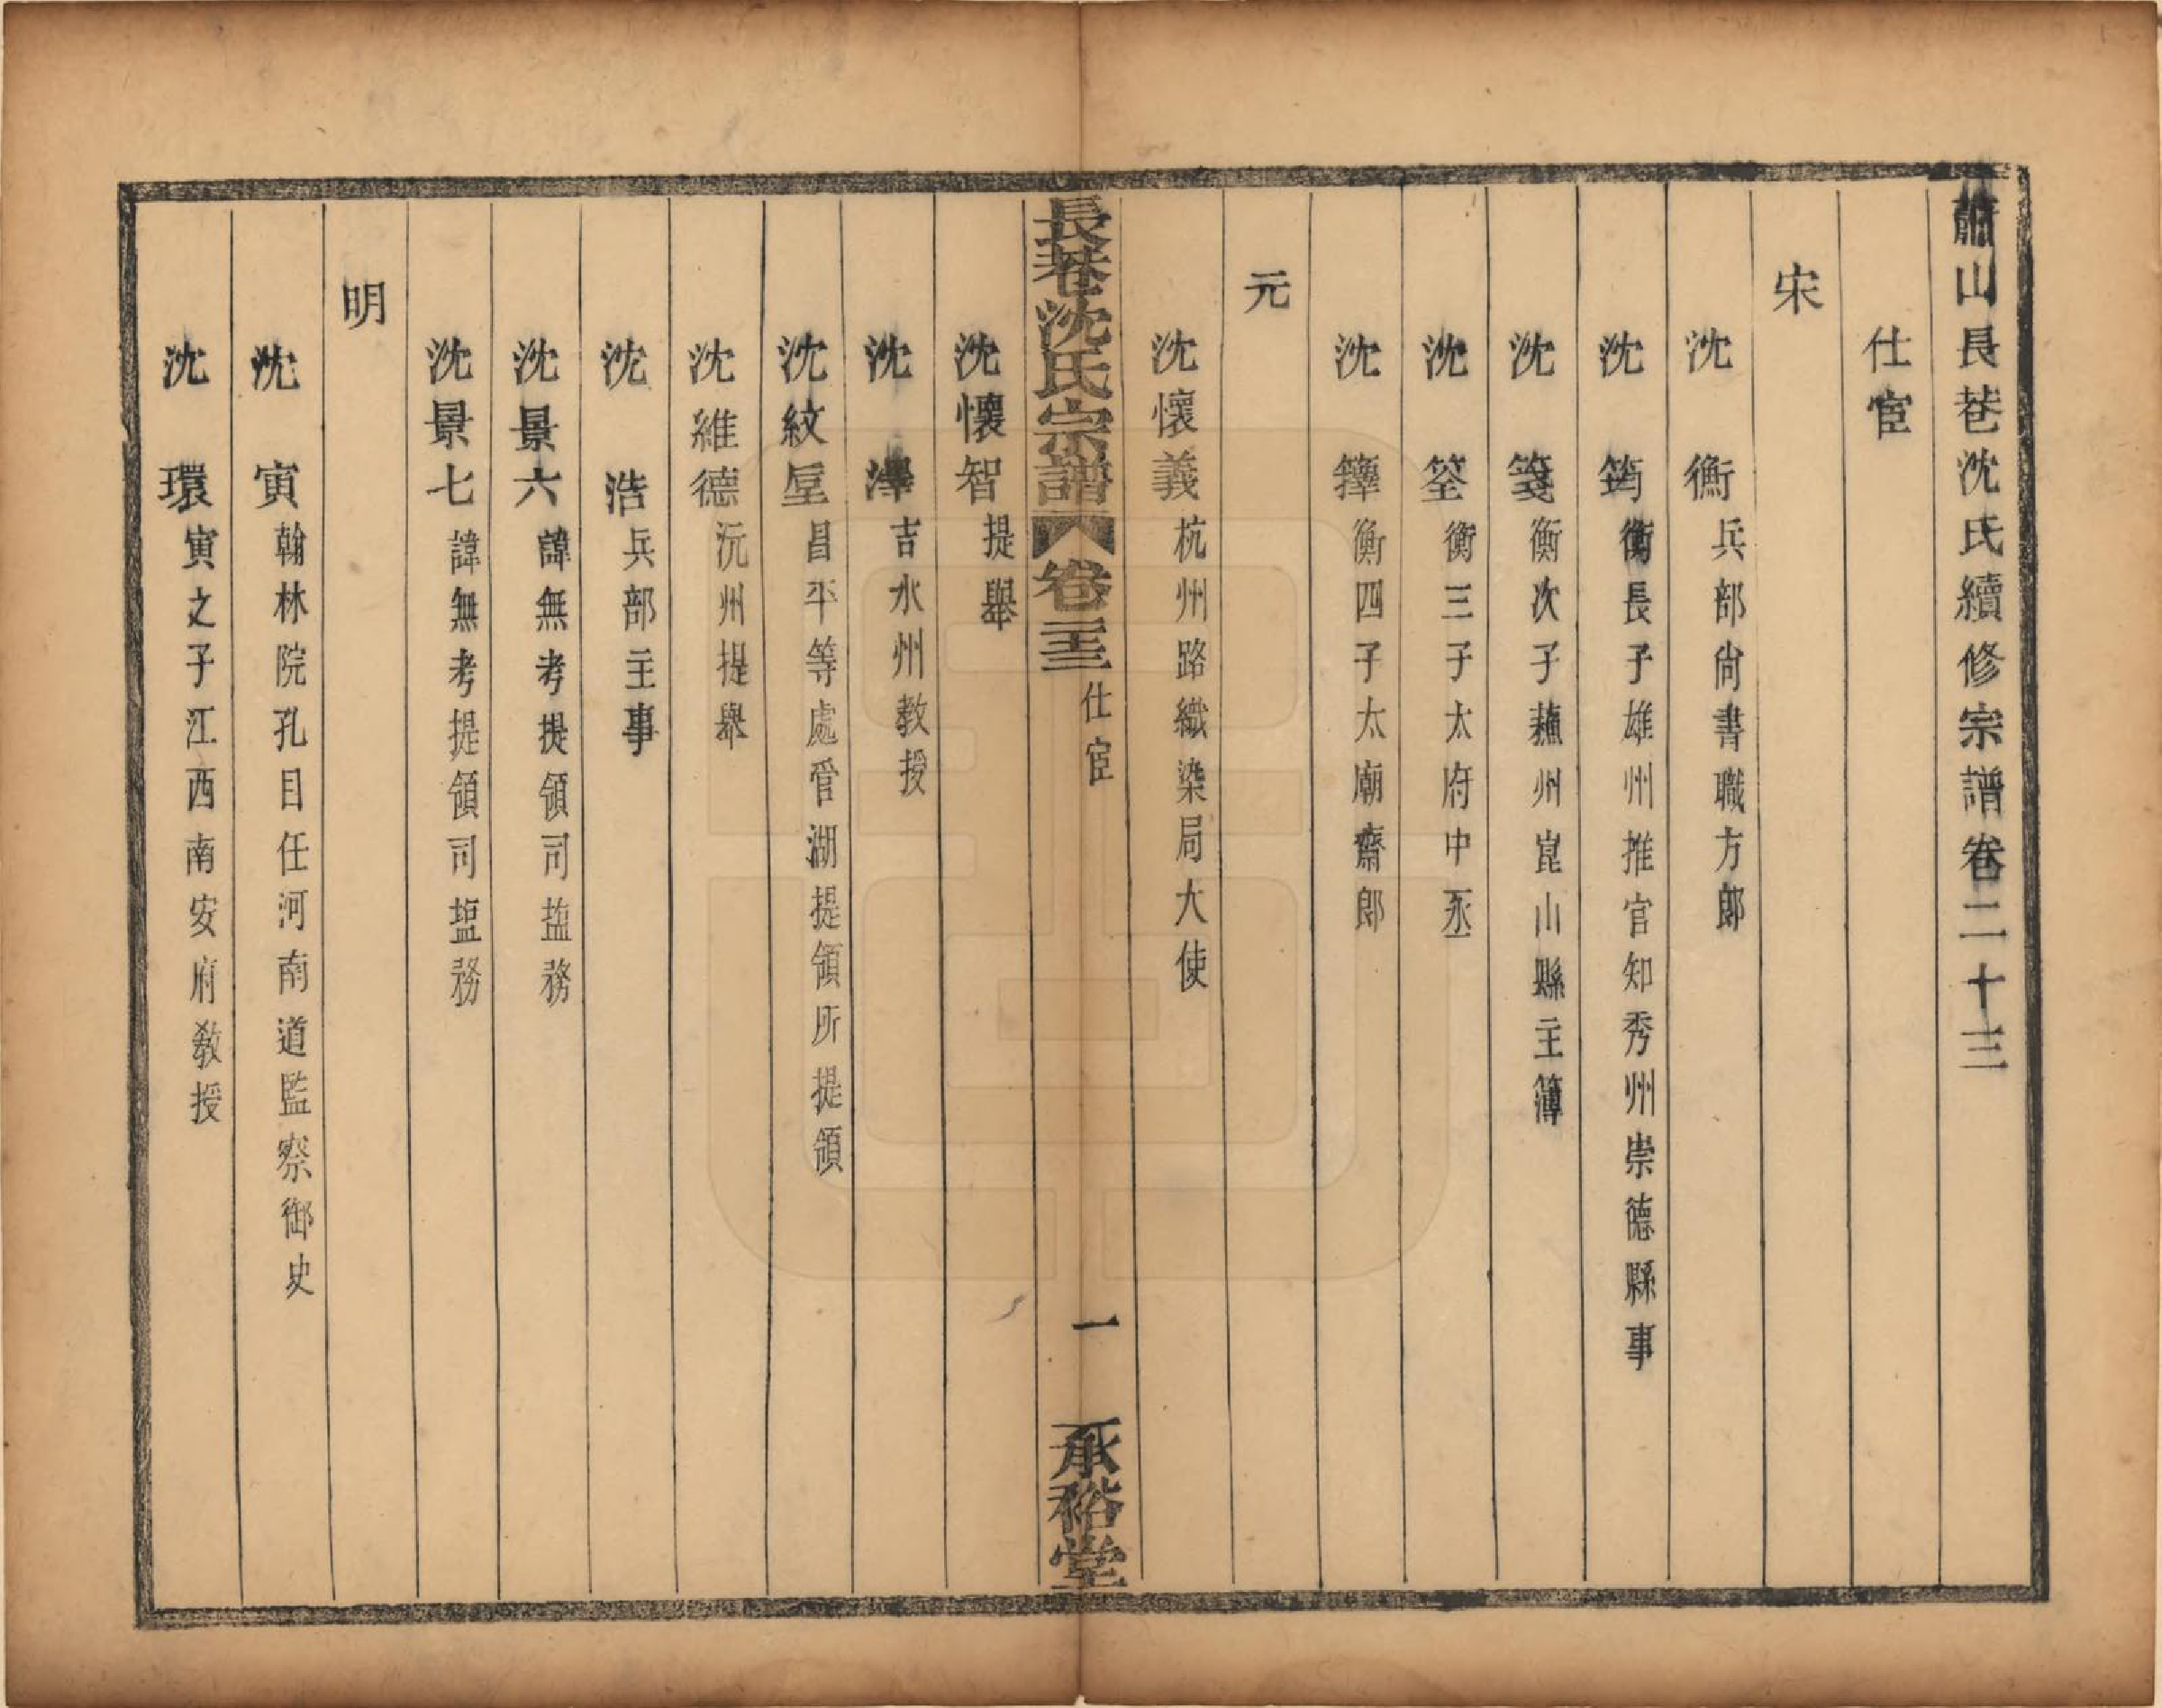 蕭山長巷沈氏續修宗譜卷二十三
仕宦
宋
沈衡兵部尙書職方郎
沈筠衡長子雄州推官知秀州崇德縣事
沈箋衡次子蘓州崑山縣主簿
沈筌衡三子太府中丞
沈籜衡四子太廟齋郎
元
沈懷義杭州路織染局大使
長巷沈氏宗譜 卷二十三 仕宦 一 承裕堂
沈懷智提舉
沈澤吉水州教授
沈紋垕昌平等處管湖提領所提領
沈維德沅州提舉
沈浩兵部主事
沈景六諱無考提領司塩務
沈景七諱無考提領司塩務
明
沈寅翰林院孔目任河南道監察御史
沈環寅之子江西南安府教授